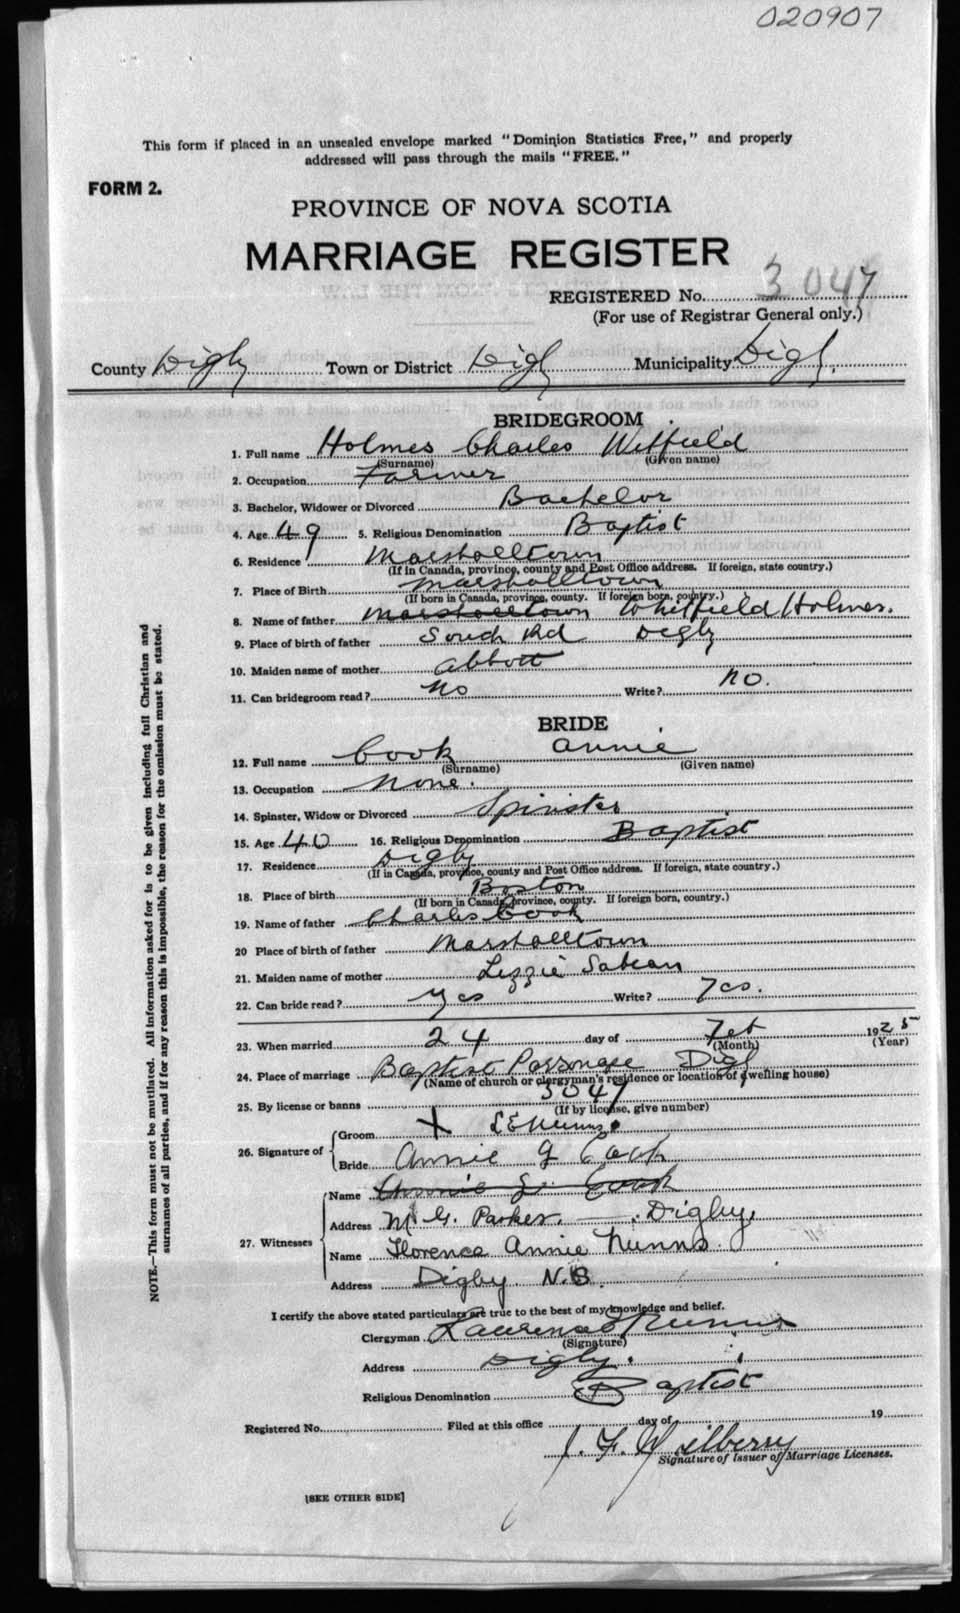 020907
This form if placed in an unsealed envelope marked "Dominion Statistics Free," and properly
addressed will pass through the mails "FREE."
FORM 2.
PROVINCE OF NOVA SCOTIA
MARRIAGE REGISTER
REGISTERED No. 3047
(For use of Registrar General only.)
County Digby Town or District Digby Municipality Digby
BRIDEGROOM
1. Full name Holmes Charles Witfield
(Surname) (Given name)
2. Occupation Farmer
3. Bachelor, Widower or Divorced Bachelor
4. Age 49 5. Religious Denomination Baptist
6. Residence Marshalltown
(If in Canada, province, county and Post Office address. If foreign, state country.)
7. Place of Birth Marshalltown
(If born in Canada, province, county. If foreign born, country.)
8. Name of father Marshalltown Whitfield Holmes.
9. Place of birth of father South Rd Digby
10. Maiden name of mother Abbott
11. Can bridegroom read? No Write? no.
BRIDE
12. Full name Cook Annie
(Surname) (Given name)
13. Occupation None.
14. Spinster, Widow or Divorced Spinster
15. Age 40 16. Religious Denomination Baptist
17. Residence Digby
(If in Canada, province, county and Post Office address. If foreign, state country.)
18. Place of birth Boston
(If born in Canada, province, county. If foreign born, country.)
19. Name of father Charles Cook
20 Place of birth of father Marshalltown
21. Maiden name of mother Lizzie Sabean
22. Can bride read? Yes Write? Yes.
23. When married 24 day of Feb 1925
(Month) (Year)
24. Place of marriage Baptist Parsonage Digby
(Name of church or clergyman's residence or location of dwelling house)
25. By license or banns 3047
(If by license, give number)
26. Signature of Groom X L E Nunns
Bride Annie G Cook
27. Witnesses Name Annie G. Cook
Address M. G. Parker. Digby.
Name Florence Annie Nunns.
Address Digby N.S.
I certify the above stated particulars are true to the best of my knowledge and belief.
Clergyman Laurence E Nunns
(Signature)
Address Digby.
Religious Denomination Baptist
Registered No. Filed at this office day of 19
J. F.
Signature of Issuer of Marriage Licenses.
[SEE OTHER SIDE]
NOTE.—This form must not be mutilated. All information asked for is to be given including full Christian and
surnames of all parties, and if for any reason this is impossible, the reason for the omission must be stated.